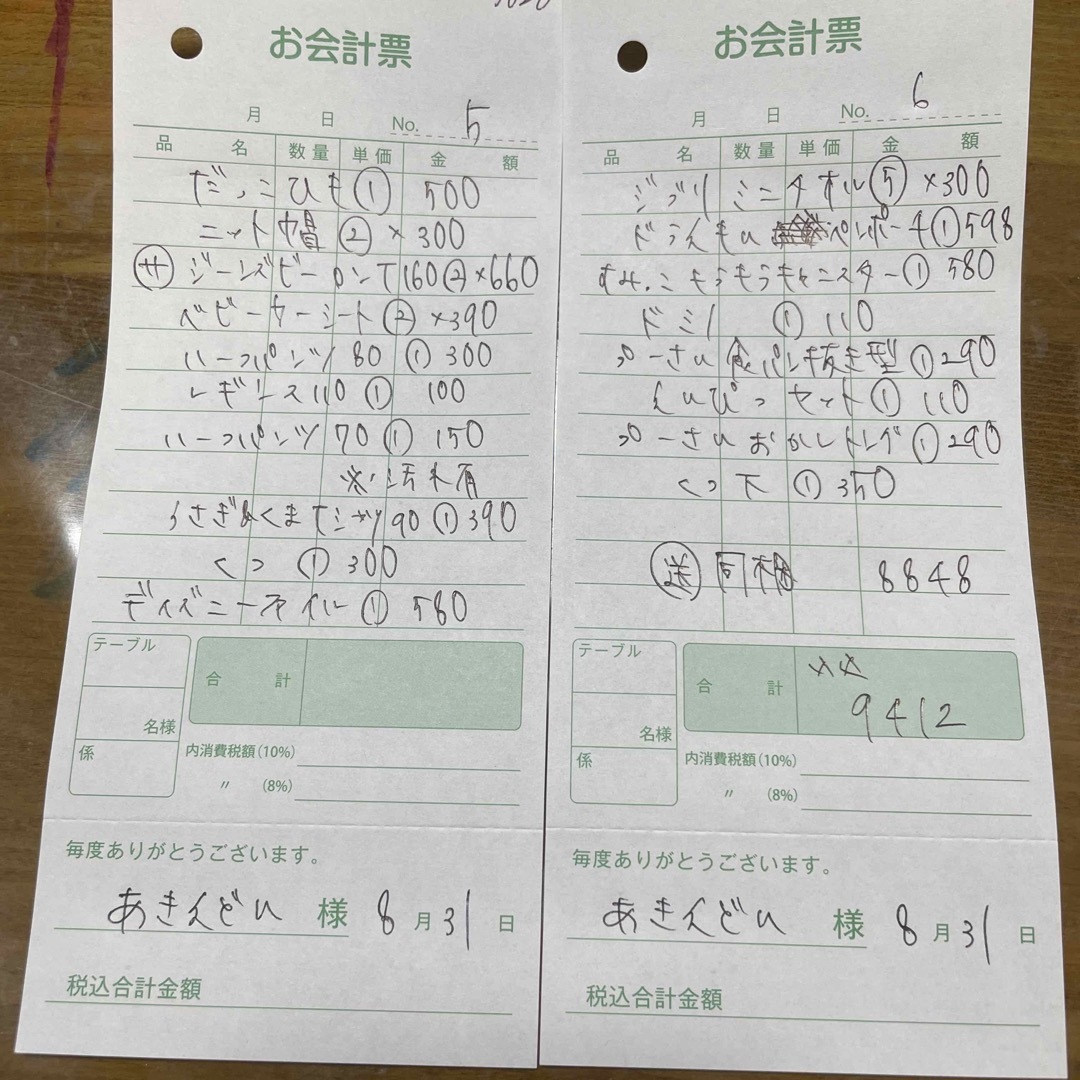 お会計票
月 日 No. 5
品名 数量 単価 金額
だっこひも ① 500
ニット帽 ② ×300
サ ジーンズビーロンT160 ② ×660
ベビーカーシート ② ×390
ハーフパンツ 80 ① 300
レギンス110 ① 100
ハーフパンツ 70 ① 150
※汚れ有
うさぎ&くまTシャツ90 ① 390
くつ ① 300
ディズニー ① 580
テーブル
名様
係
合計
内消費税額(10%)
〃 (8%)
毎度ありがとうございます。
あきんどい 様 8月31日
税込合計金額
お会計票
月 日 No. 6
品名 数量 単価 金額
ジブリ ミニタオル ⑤ ×300
ドラえもん ペンポーチ ① 598
すみっこもうもうキャニスター ① 580
ドミノ ① 110
プーさん 食パン抜き型 ① 290
えんぴつセット ① 110
プーさんおかしトング ① 290
くつ下 ① 350
送 同梱 8848
テーブル
名様
係
合計 9412
内消費税額(10%)
〃 (8%)
毎度ありがとうございます。
あきんどい 様 8月31日
税込合計金額